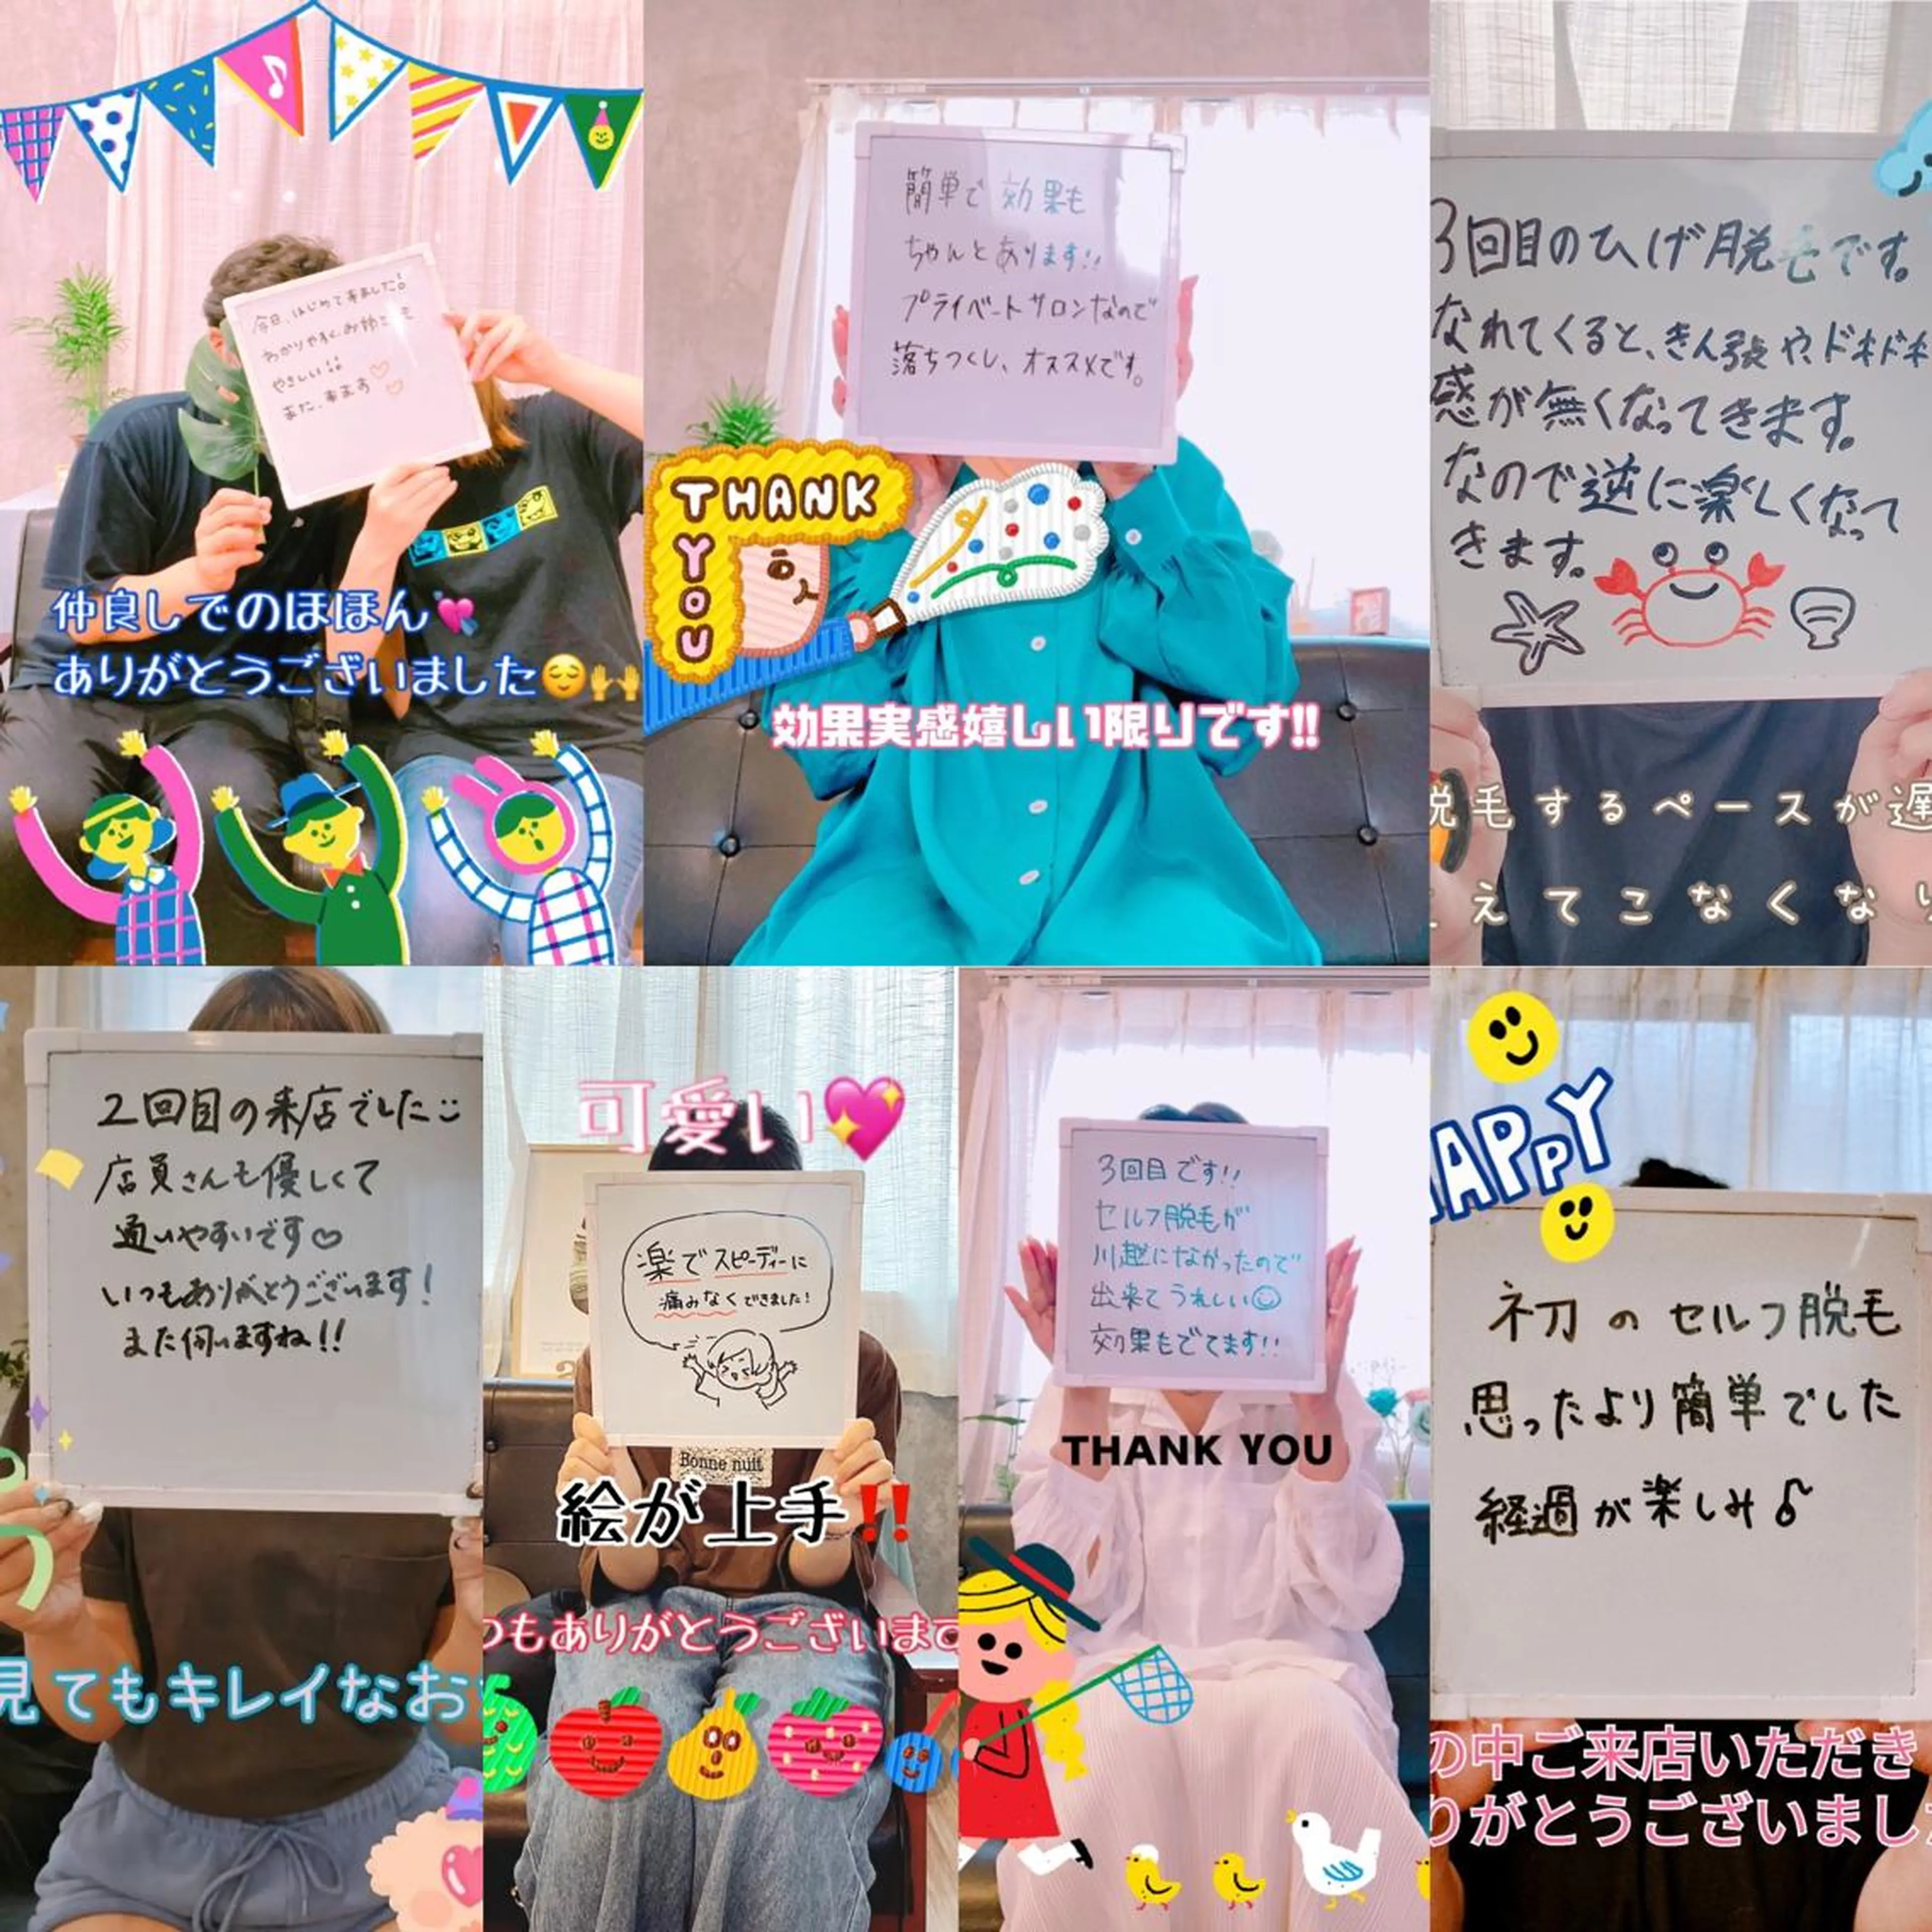 今日、はじめて来ました!
わかりやすく、お姉さんも
やさしい!!
また、来ます♡♡
仲良しでのほほん💘
ありがとうございました😌🙌
簡単で効果も
ちゃんとあります!!
プライベートサロンなので
落ちつくし、オススメです。
THANK
YOU
効果実感嬉しい限りです!!
3回目のひげ脱毛です。
なれてくると、きん張や、ドキドキ
感が無くなってきます。
なので逆に楽しくなって
きます。
脱毛するペースが遅
えてこなくな
2回目の来店でした
店員さんも優しくて
通いやすいです♡
いつもありがとうございます!
また伺いますね!!
見てもキレイなお
可愛い💖
楽でスピーディーに
痛みなくできました!
Bonne nuit
絵が上手‼️
つもありがとうございます
3回目です!!
セルフ脱毛が
川越になかったので
出来てうれしい☺
効果もでてます!!
THANK YOU
HAPPY
初のセルフ脱毛
思ったより簡単でした
経過が楽しみ♪
の中ご来店いただき
りがとうございまし